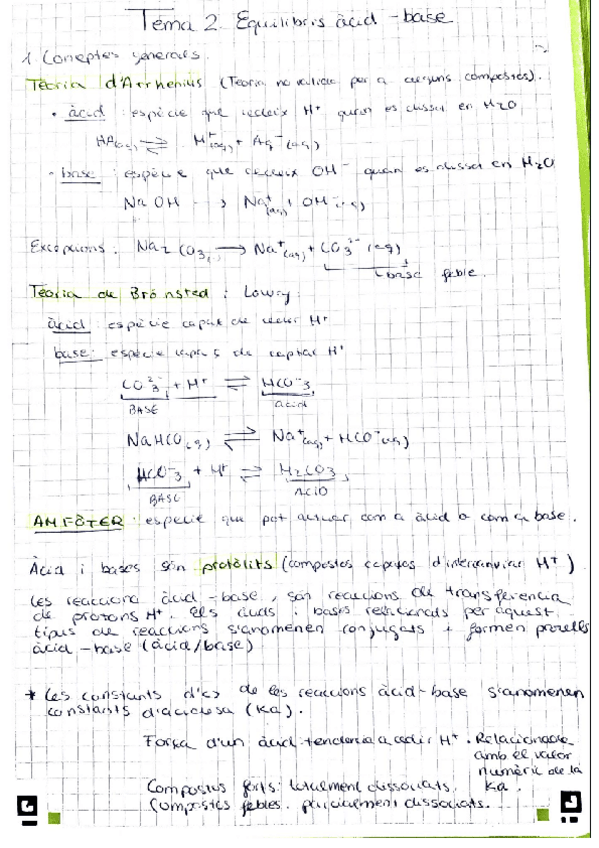 Tema 2. Equilibris àcid-base
1. Conceptes generals.
Teoria d'Arrhenius (Teoria no vàlida per a alguns compostos).
• àcid: espècie que cedeix H⁺ quan es dissol en H₂O
HA(aq) ⇌ H⁺(aq) + Aq⁻(aq)
• base: espècie que cedeix OH⁻ quan es dissol en H₂O
NaOH → Na⁺(aq) + OH⁻(aq)
Excepcions: Na₂CO₃ → Na⁺(aq) + CO₃²⁻(aq)
base feble.
Teoria de Brönsted i Lowry:
àcid: espècie capaç de cedir H⁺
base: espècie capaç de captar H⁺
CO₃²⁻ + H⁺ ⇌ HCO⁻₃
BASE àcid
NaHCO(s) ⇌ Na⁺(aq) + HCO⁻(aq)
HCO⁻₃ + H⁺ ⇌ H₂CO₃
BASE ÀCID
AMFÒTER: espècie que pot actuar com a àcid o com a base.
Àcid i bases són protòlits (compostos capaços d'intercanviar H⁺)
Les reaccions àcid-base, són reaccions de transferència
de protons H⁺. Els àcids i bases relacionats per aquest
tipus de reaccions s'anomenen conjugats i formen parells
àcid-base (àcid/base)
* Les constants d'eq de les reaccions àcid-base s'anomenen
constants d'acidesa (Ka).
Força d'un àcid: tendència a cedir H⁺. Relacionable
amb el valor
numèric de la
Ka.
Compostos forts: totalment dissociats.
Compostos febles: parcialment dissociats.